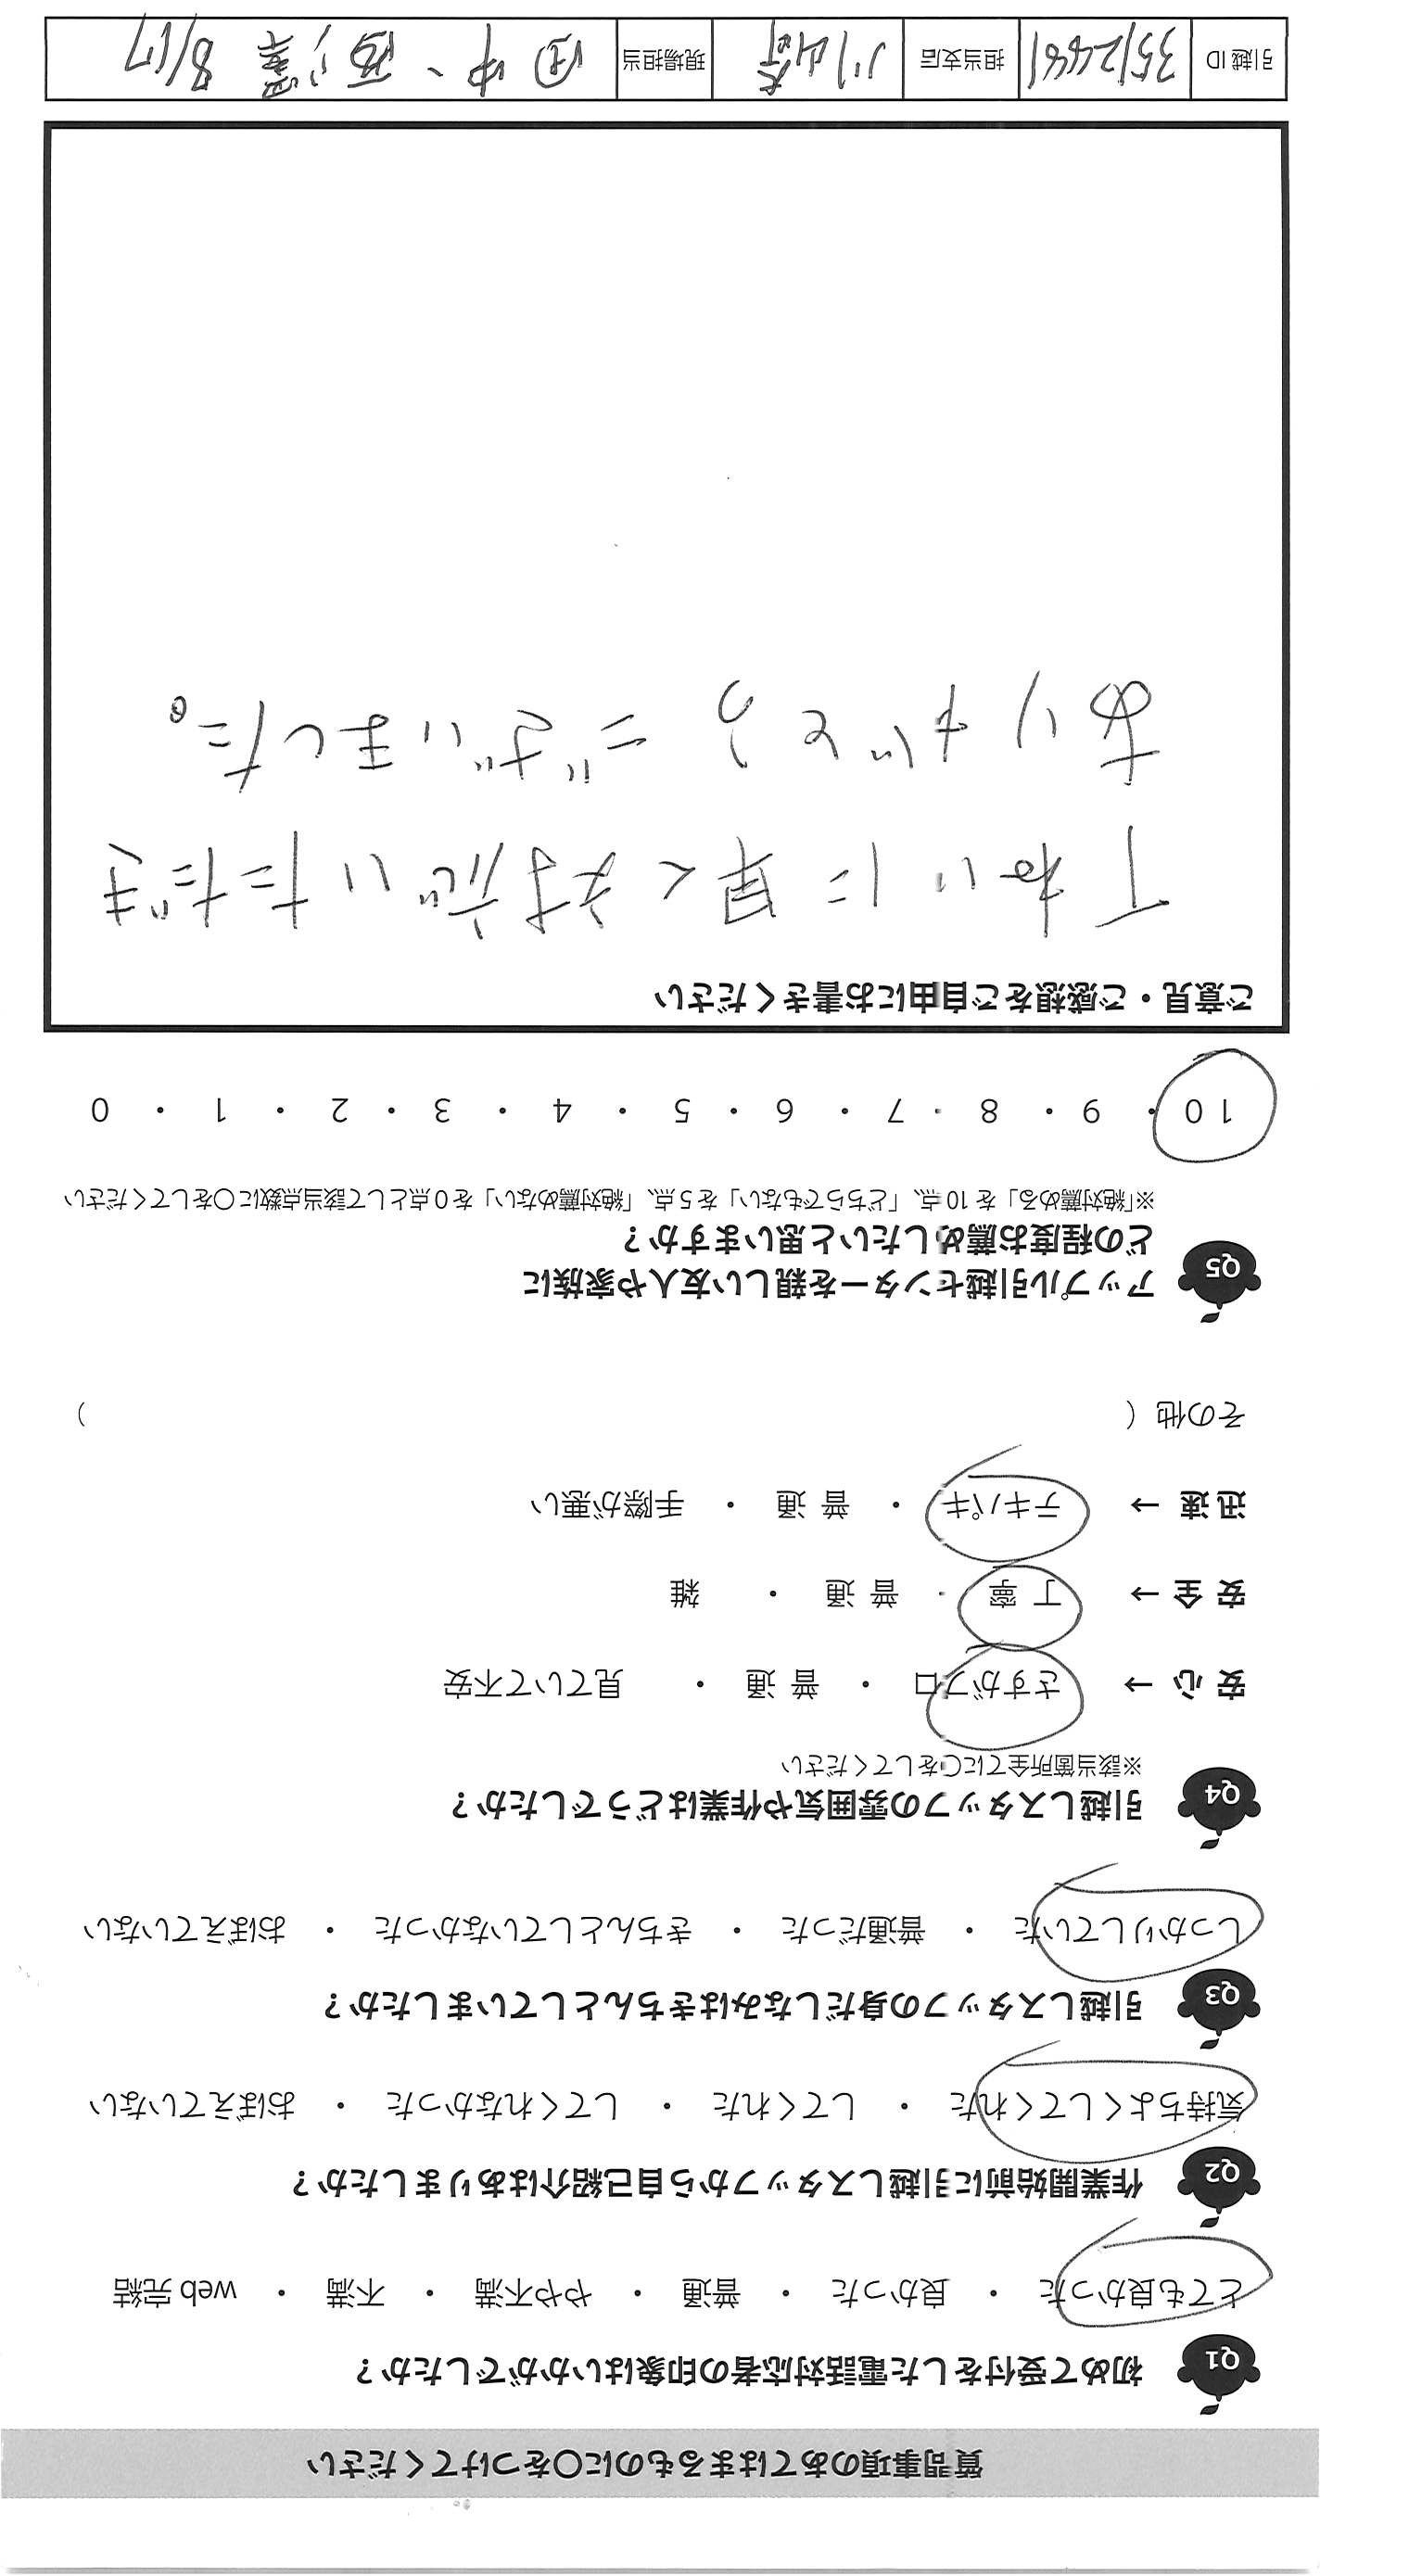 質問事項のあてはまるものに〇をつけてください
Q1 初めて受付をした電話対応者の印象はいかがでしたか？
とても良かった ・ 良かった ・ 普通 ・ やや不満 ・ 不満 ・ web 完結
Q2 作業開始前に引越しスタッフから自己紹介はありましたか？
気持ちよくしてくれた ・ してくれた ・ してくれなかった ・ おぼえていない
Q3 引越しスタッフの身だしなみはきちんとしていましたか？
しっかりしていた ・ 普通だった ・ きちんとしていなかった ・ おぼえていない
Q4 引越しスタッフの雰囲気や作業はどうでしたか？
※該当箇所全てに〇をしてください
安心 → さすがプロ ・ 普通 ・ 見ていて不安
安全 → 丁寧 ・ 普通 ・ 雑
迅速 → テキパキ ・ 普通 ・ 手際が悪い
その他（ ）
Q5 アップル引越センターを親しい友人や家族に
どの程度お薦めしたいと思いますか？
※「絶対薦める」を 10 点、「どちらでもない」を 5 点、「絶対薦めない」を 0 点として該当点数に〇をしてください
10 ・ 9 ・ 8 ・ 7 ・ 6 ・ 5 ・ 4 ・ 3 ・ 2 ・ 1 ・ 0
ご意見・ご感想をご自由にお書きください
丁ねいに早く対応いただき
ありがとうございました。
引越 ID 3512481 担当支店 川崎 現場担当 田中、西澤 8/17